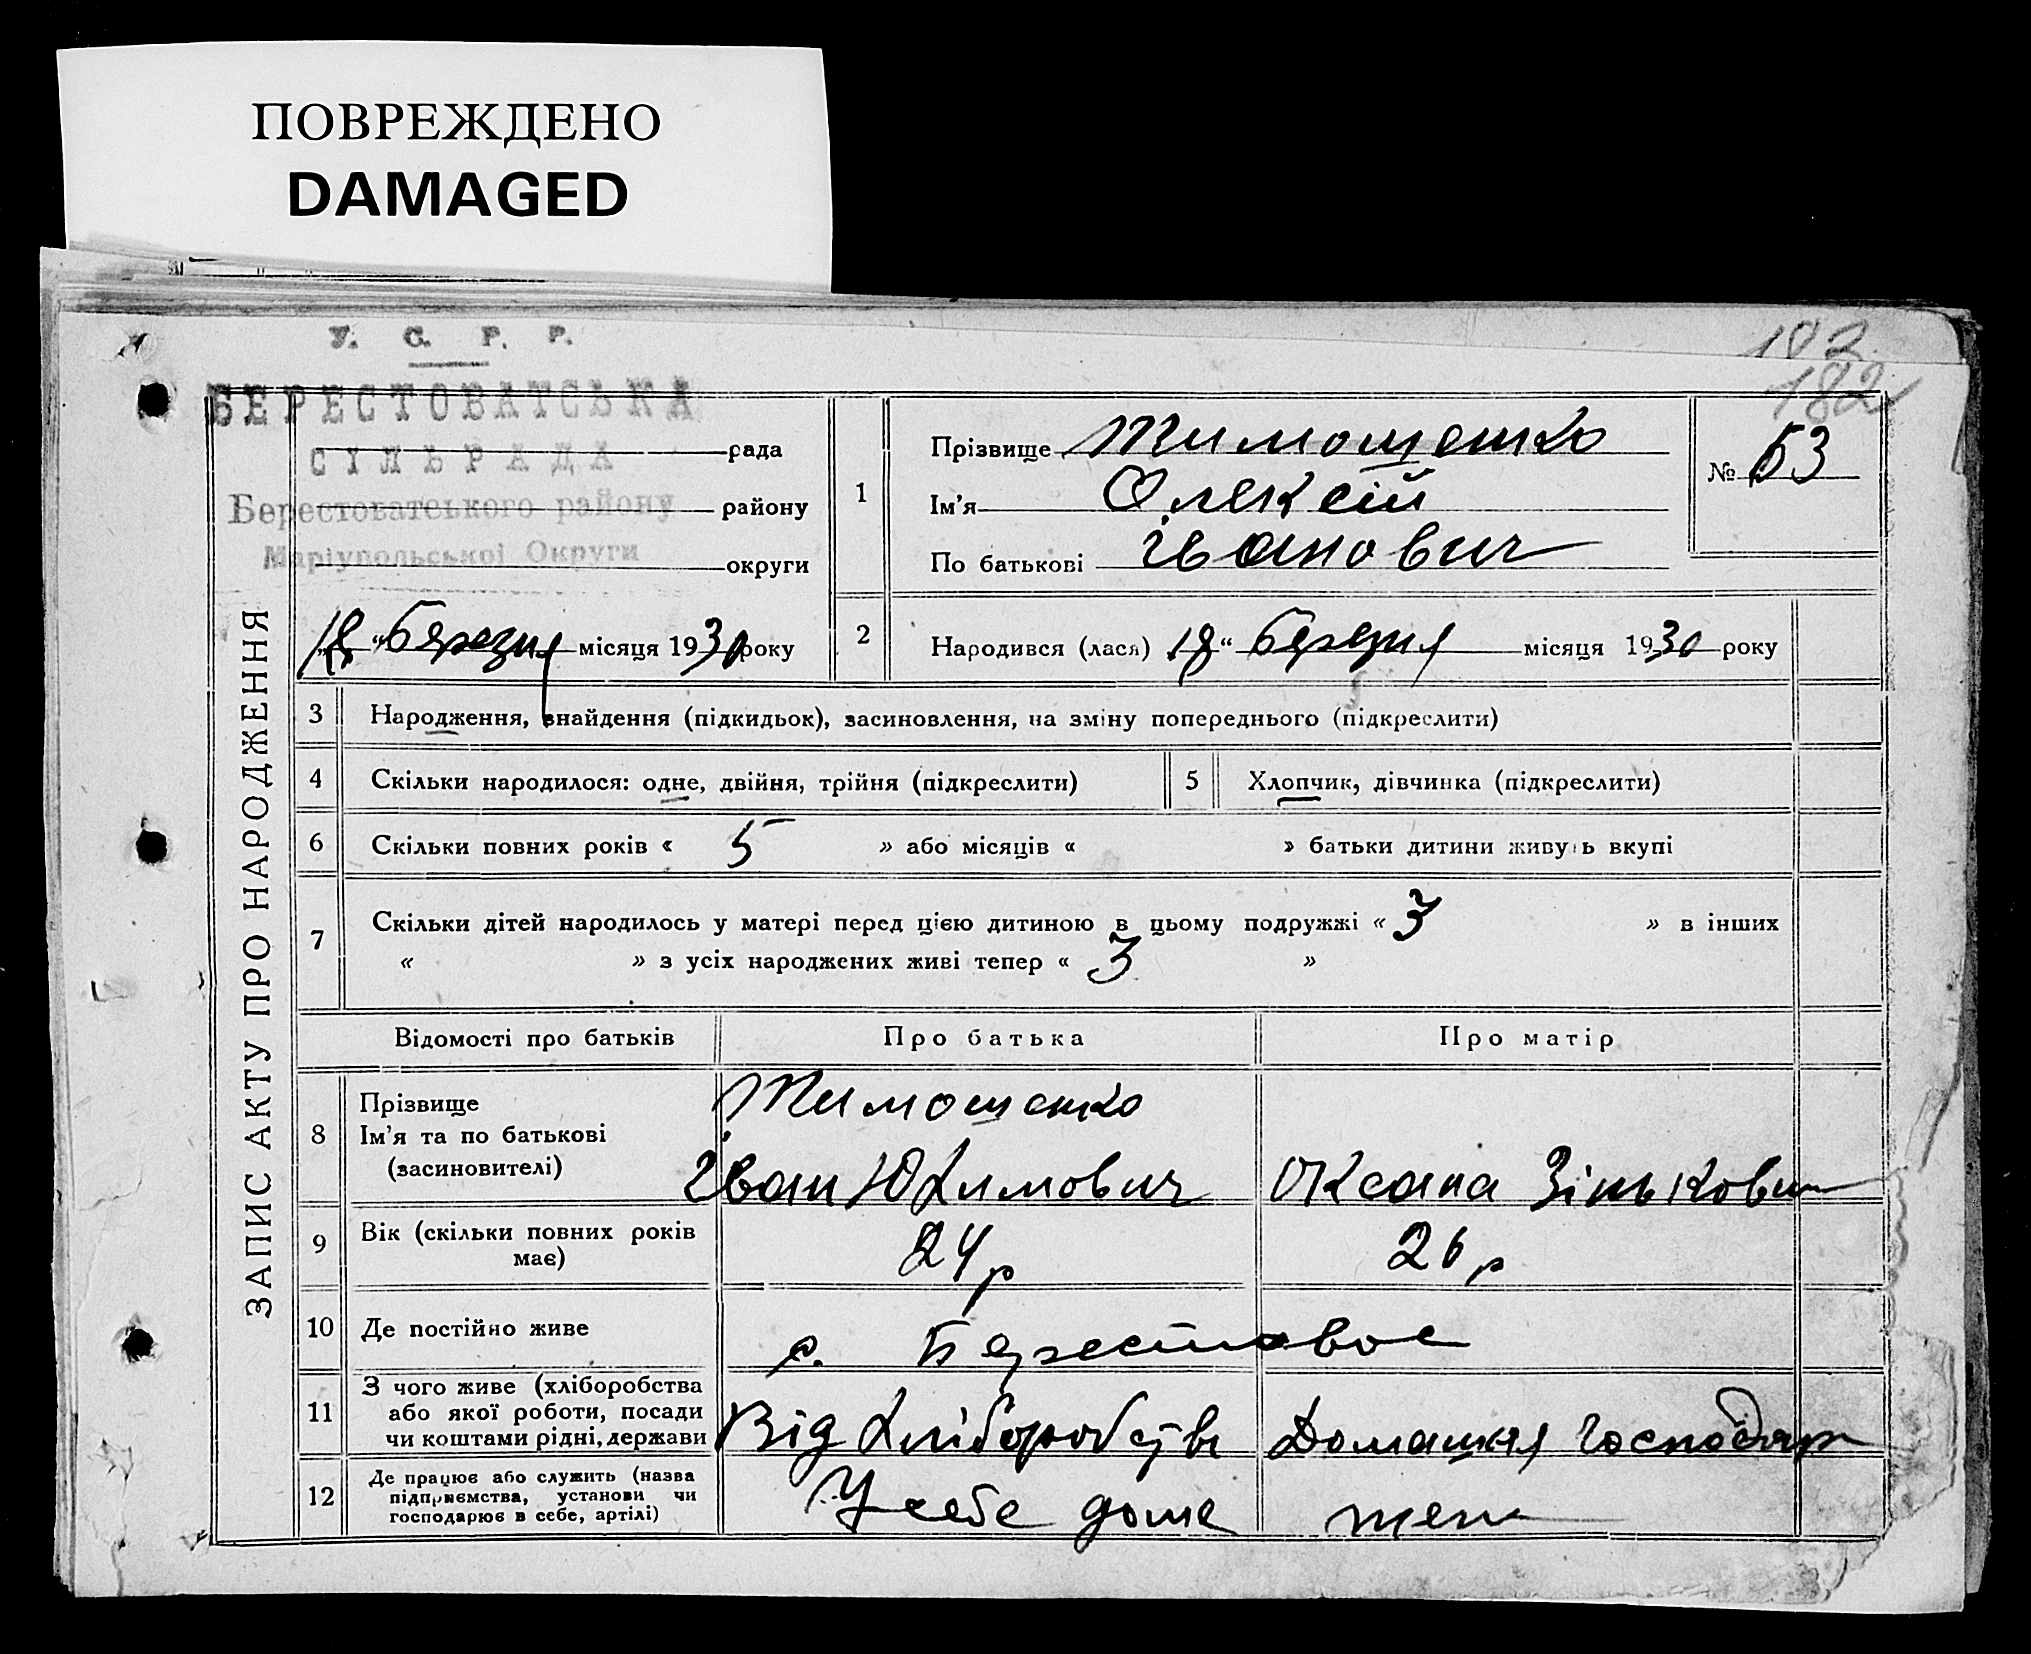 ПОВРЕЖДЕНО
DAMAGED
У. С. Р. Р.
БЕРЕСТОВАТСЬКА
СІЛЬРАДА
рада
Берестоватського району
району
Маріупольської Округи
округи
18 "Березня місяця 1930 року
ЗАПИС АКТУ ПРО НАРОДЖЕННЯ
193
182
№ 53
1
Прізвище Тимошенко
Ім'я Олексій
По батькові Іванович
2 Народився (лася) 18 " Березня місяця 1930 року
3 Народження, внайдення (підкидьок), засиновлення, на зміну попереднього (підкреслити)
4 Скільки народилося: одне, двійня, трійня (підкреслити) 5 Хлопчик, дівчинка (підкреслити)
6 Скільки повних років « 5 » або місяців « » батьки дитини живуть вкупі
7 Скільки дітей народилось у матері перед цією дитиною в цьому подружжі « 3 » в інших
« » з усіх народжених живі тепер « 3 »
Відомості про батьків Про батька Про матір
8 Прізвище
Ім'я та по батькові
(засиновителі)
Тимошенко
Іван Юхимович Оксана Зінькович
9 Вік (скільки повних років
має)
24 р 26 р
10 Де постійно живе с. Берестовое
11 З чого живе (хліборобства
або якої роботи, посади
чи коштами рідні, держави
Від Хліборобств Домашня господар
12 Де працює або служить (назва
підприємства, установи чи
господарює в себе, артілі)
У себе доме теж